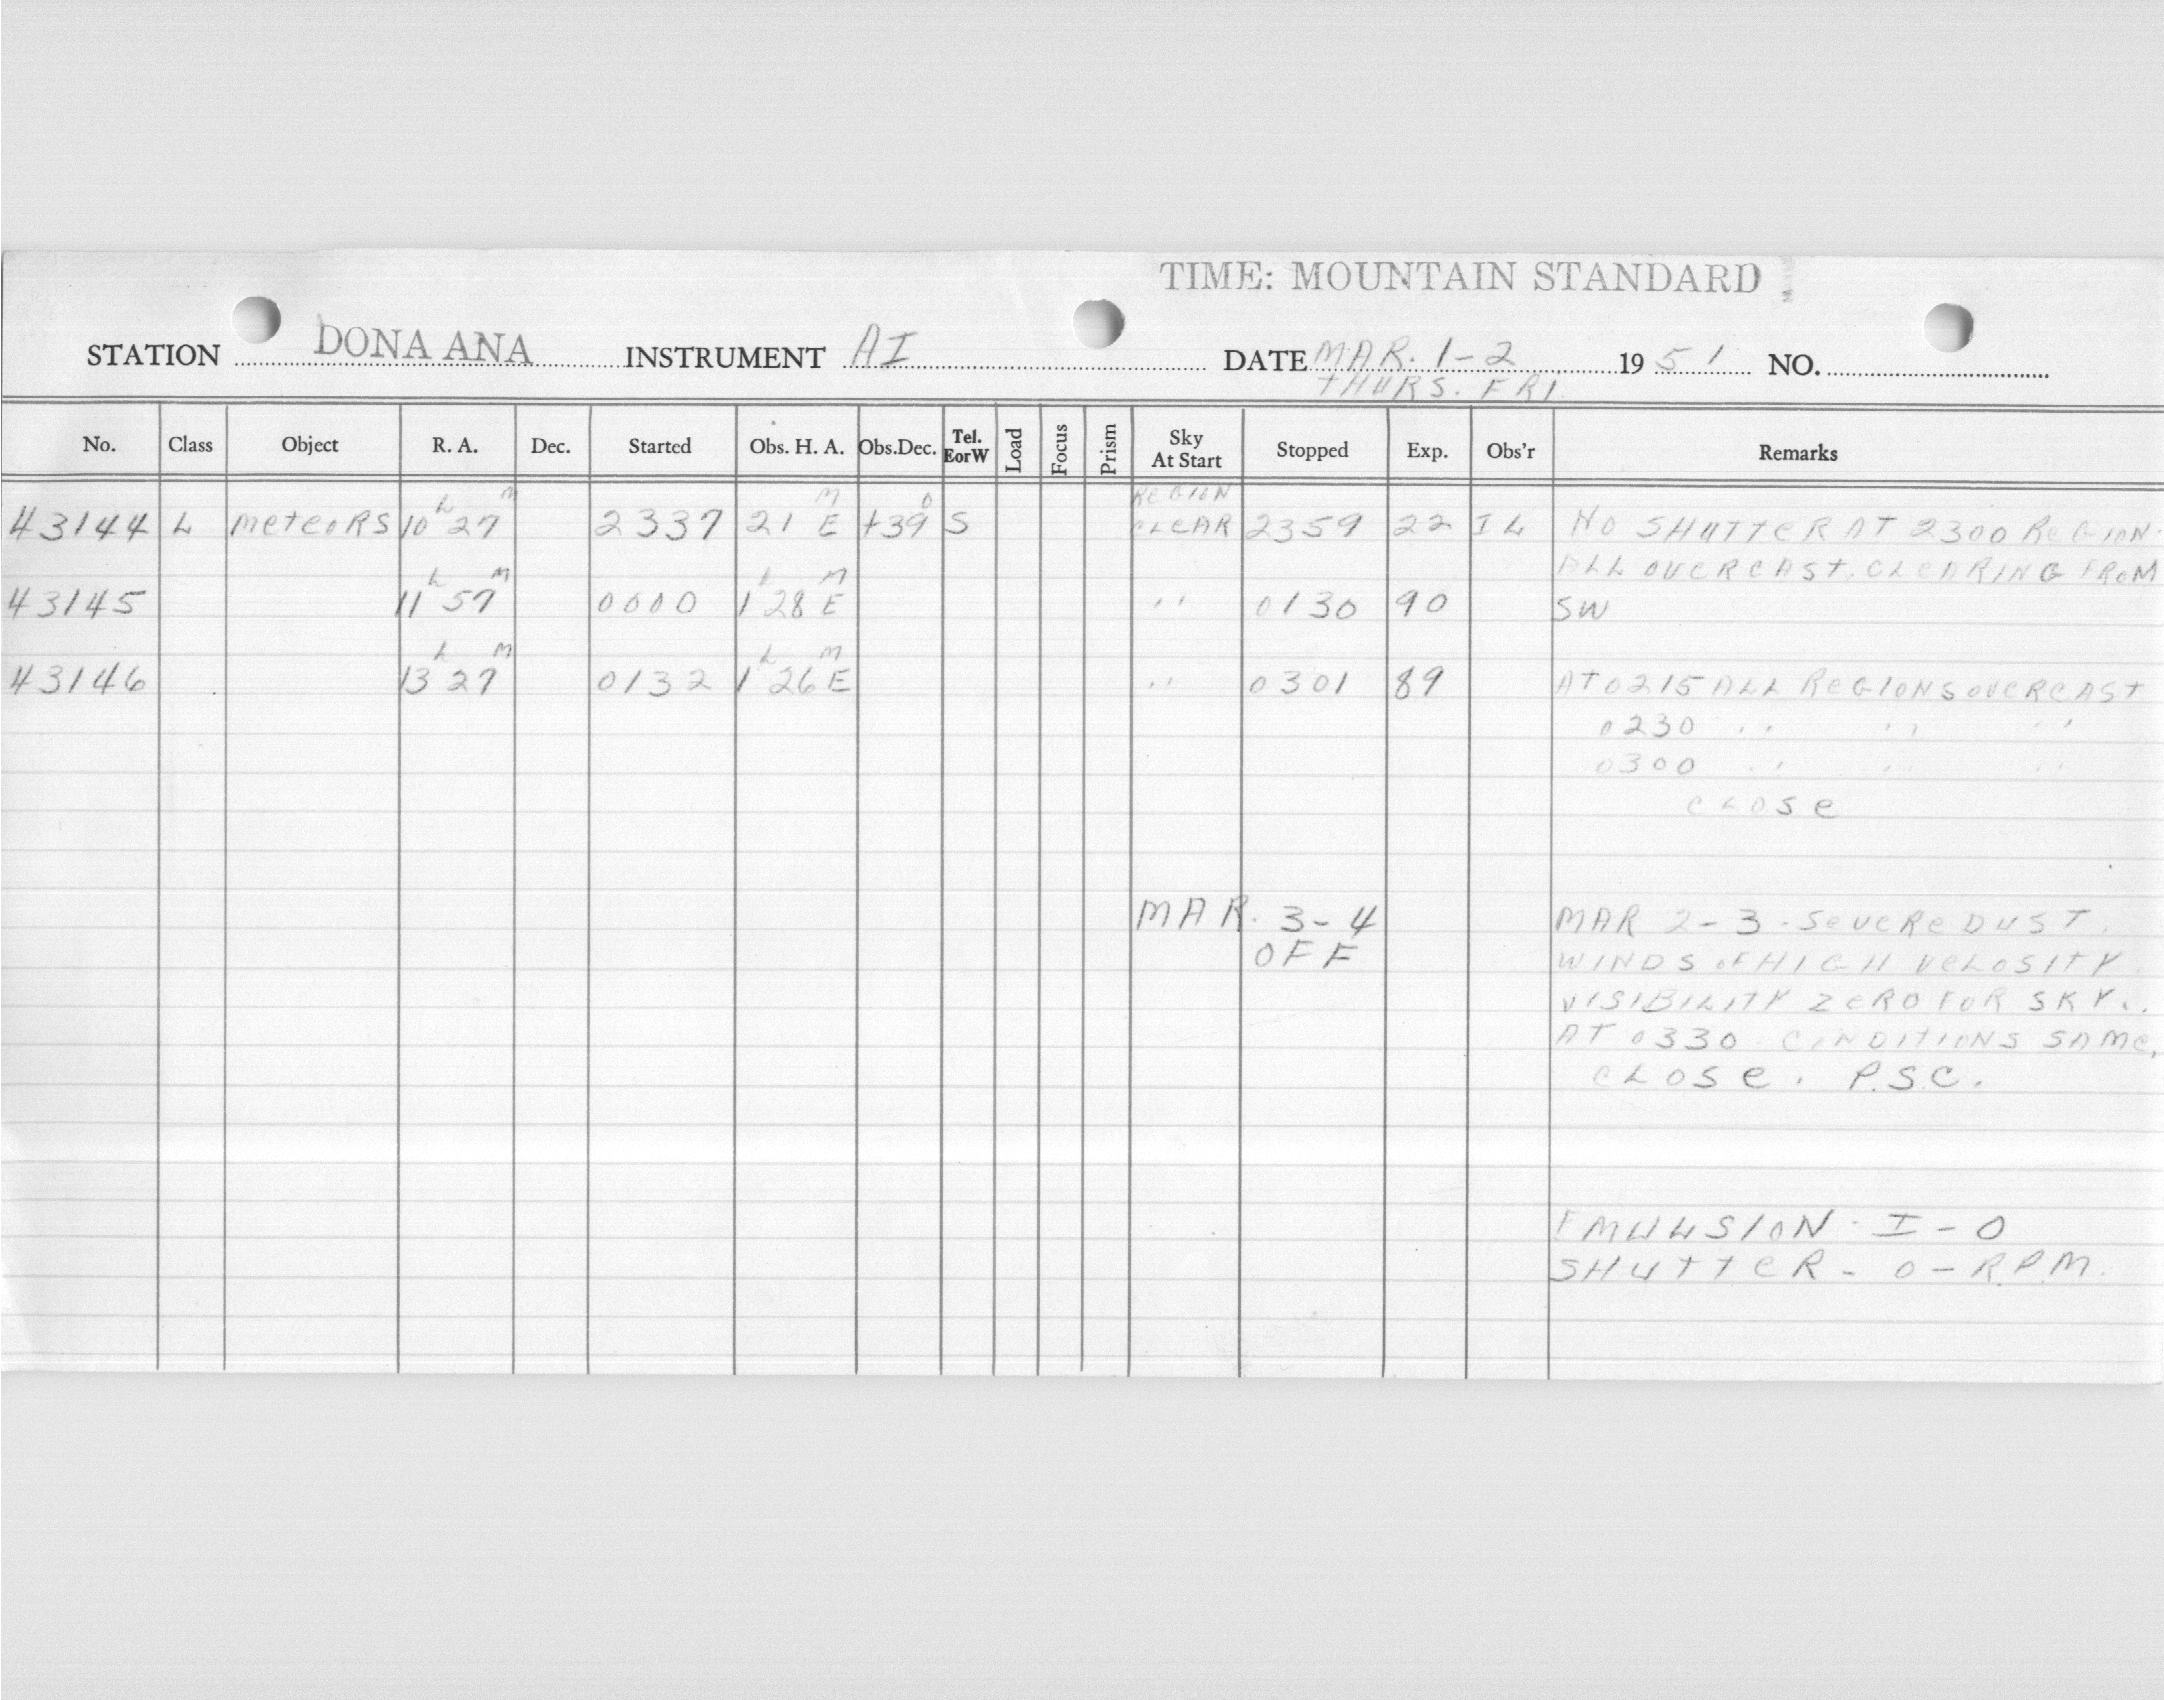 TIME: MOUNTAIN STANDARD
STATION DONA ANA INSTRUMENT AI DATE MAR. 1-2 1951 NO.
THURS. FRI.
No. Class Object R. A. Dec. Started Obs. H. A. Obs.Dec. Tel. EorW Load Focus Prism Sky At Start Stopped Exp. Obs'r Remarks
43144 L meteoRS 10h 27m 2337 21m E +39° S REGION CLEAR 2359 22 IL NO SHUTTER AT 2300 REGION.
ALL OVERCAST. CLEARING FROM
43145 11h 57m 0000 1h 28m E '' 0130 90 SW
43146 13h 27m 0132 1h 26m E '' 0301 89 AT 0215 ALL REGIONS OVERCAST
0230 '' '' ''
0300 '' '' ''
CLOSE
MAR. 3-4 MAR 2-3 - SEVERE DUST.
OFF WINDS OF HIGH VELOSITY
VISIBILITY ZERO FOR SKY.
AT 0330 CONDITIONS SAME,
CLOSE. P.S.C.
EMULSION - I-O
SHUTTER - 0 - R.P.M.